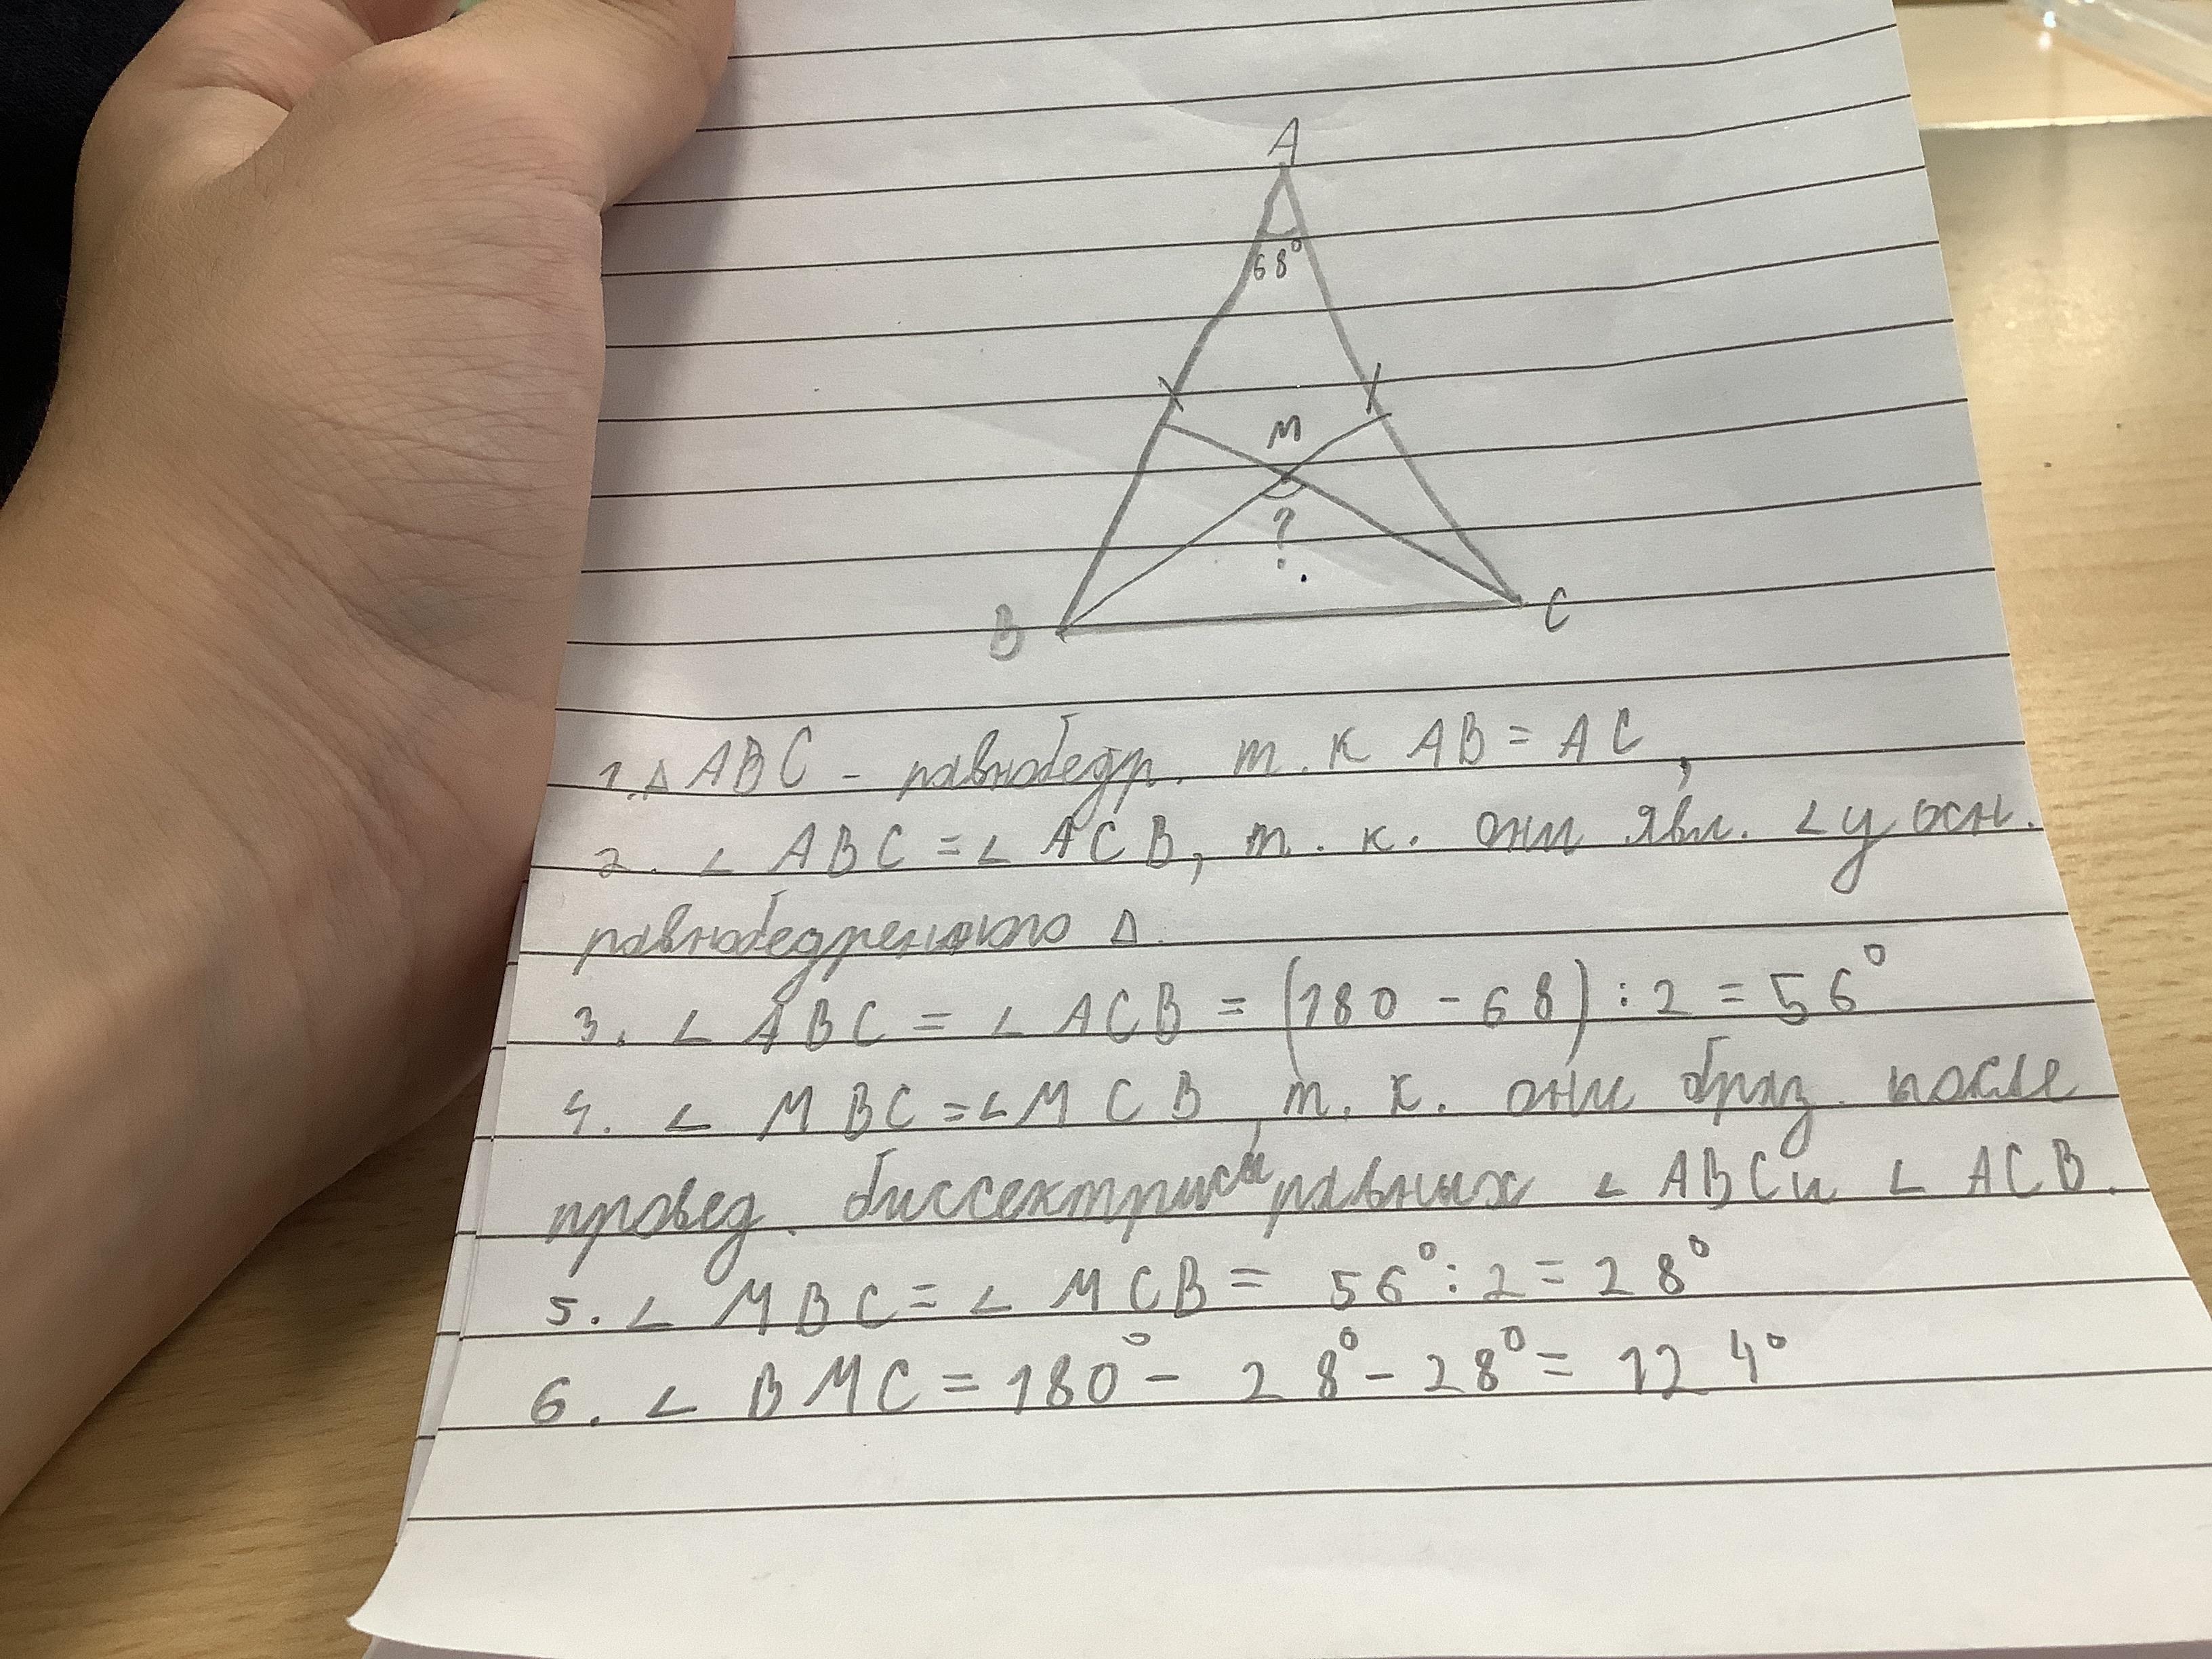 A
68°
M
?
B
C
1. △ ABC - равнобедр. т.к AB = AC,
2. ∠ ABC = ∠ ACB, т. к. они явл. ∠ у осн.
равнобедренного △.
3. ∠ ABC = ∠ ACB = (180 - 68) : 2 = 56°
4. ∠ MBC = ∠ MCB, т. к. они образ. после
провед. биссектрисы равных ∠ ABC и ∠ ACB.
5. ∠ MBC = ∠ MCB = 56° : 2 = 28°
6. ∠ BMC = 180° - 28° - 28° = 124°